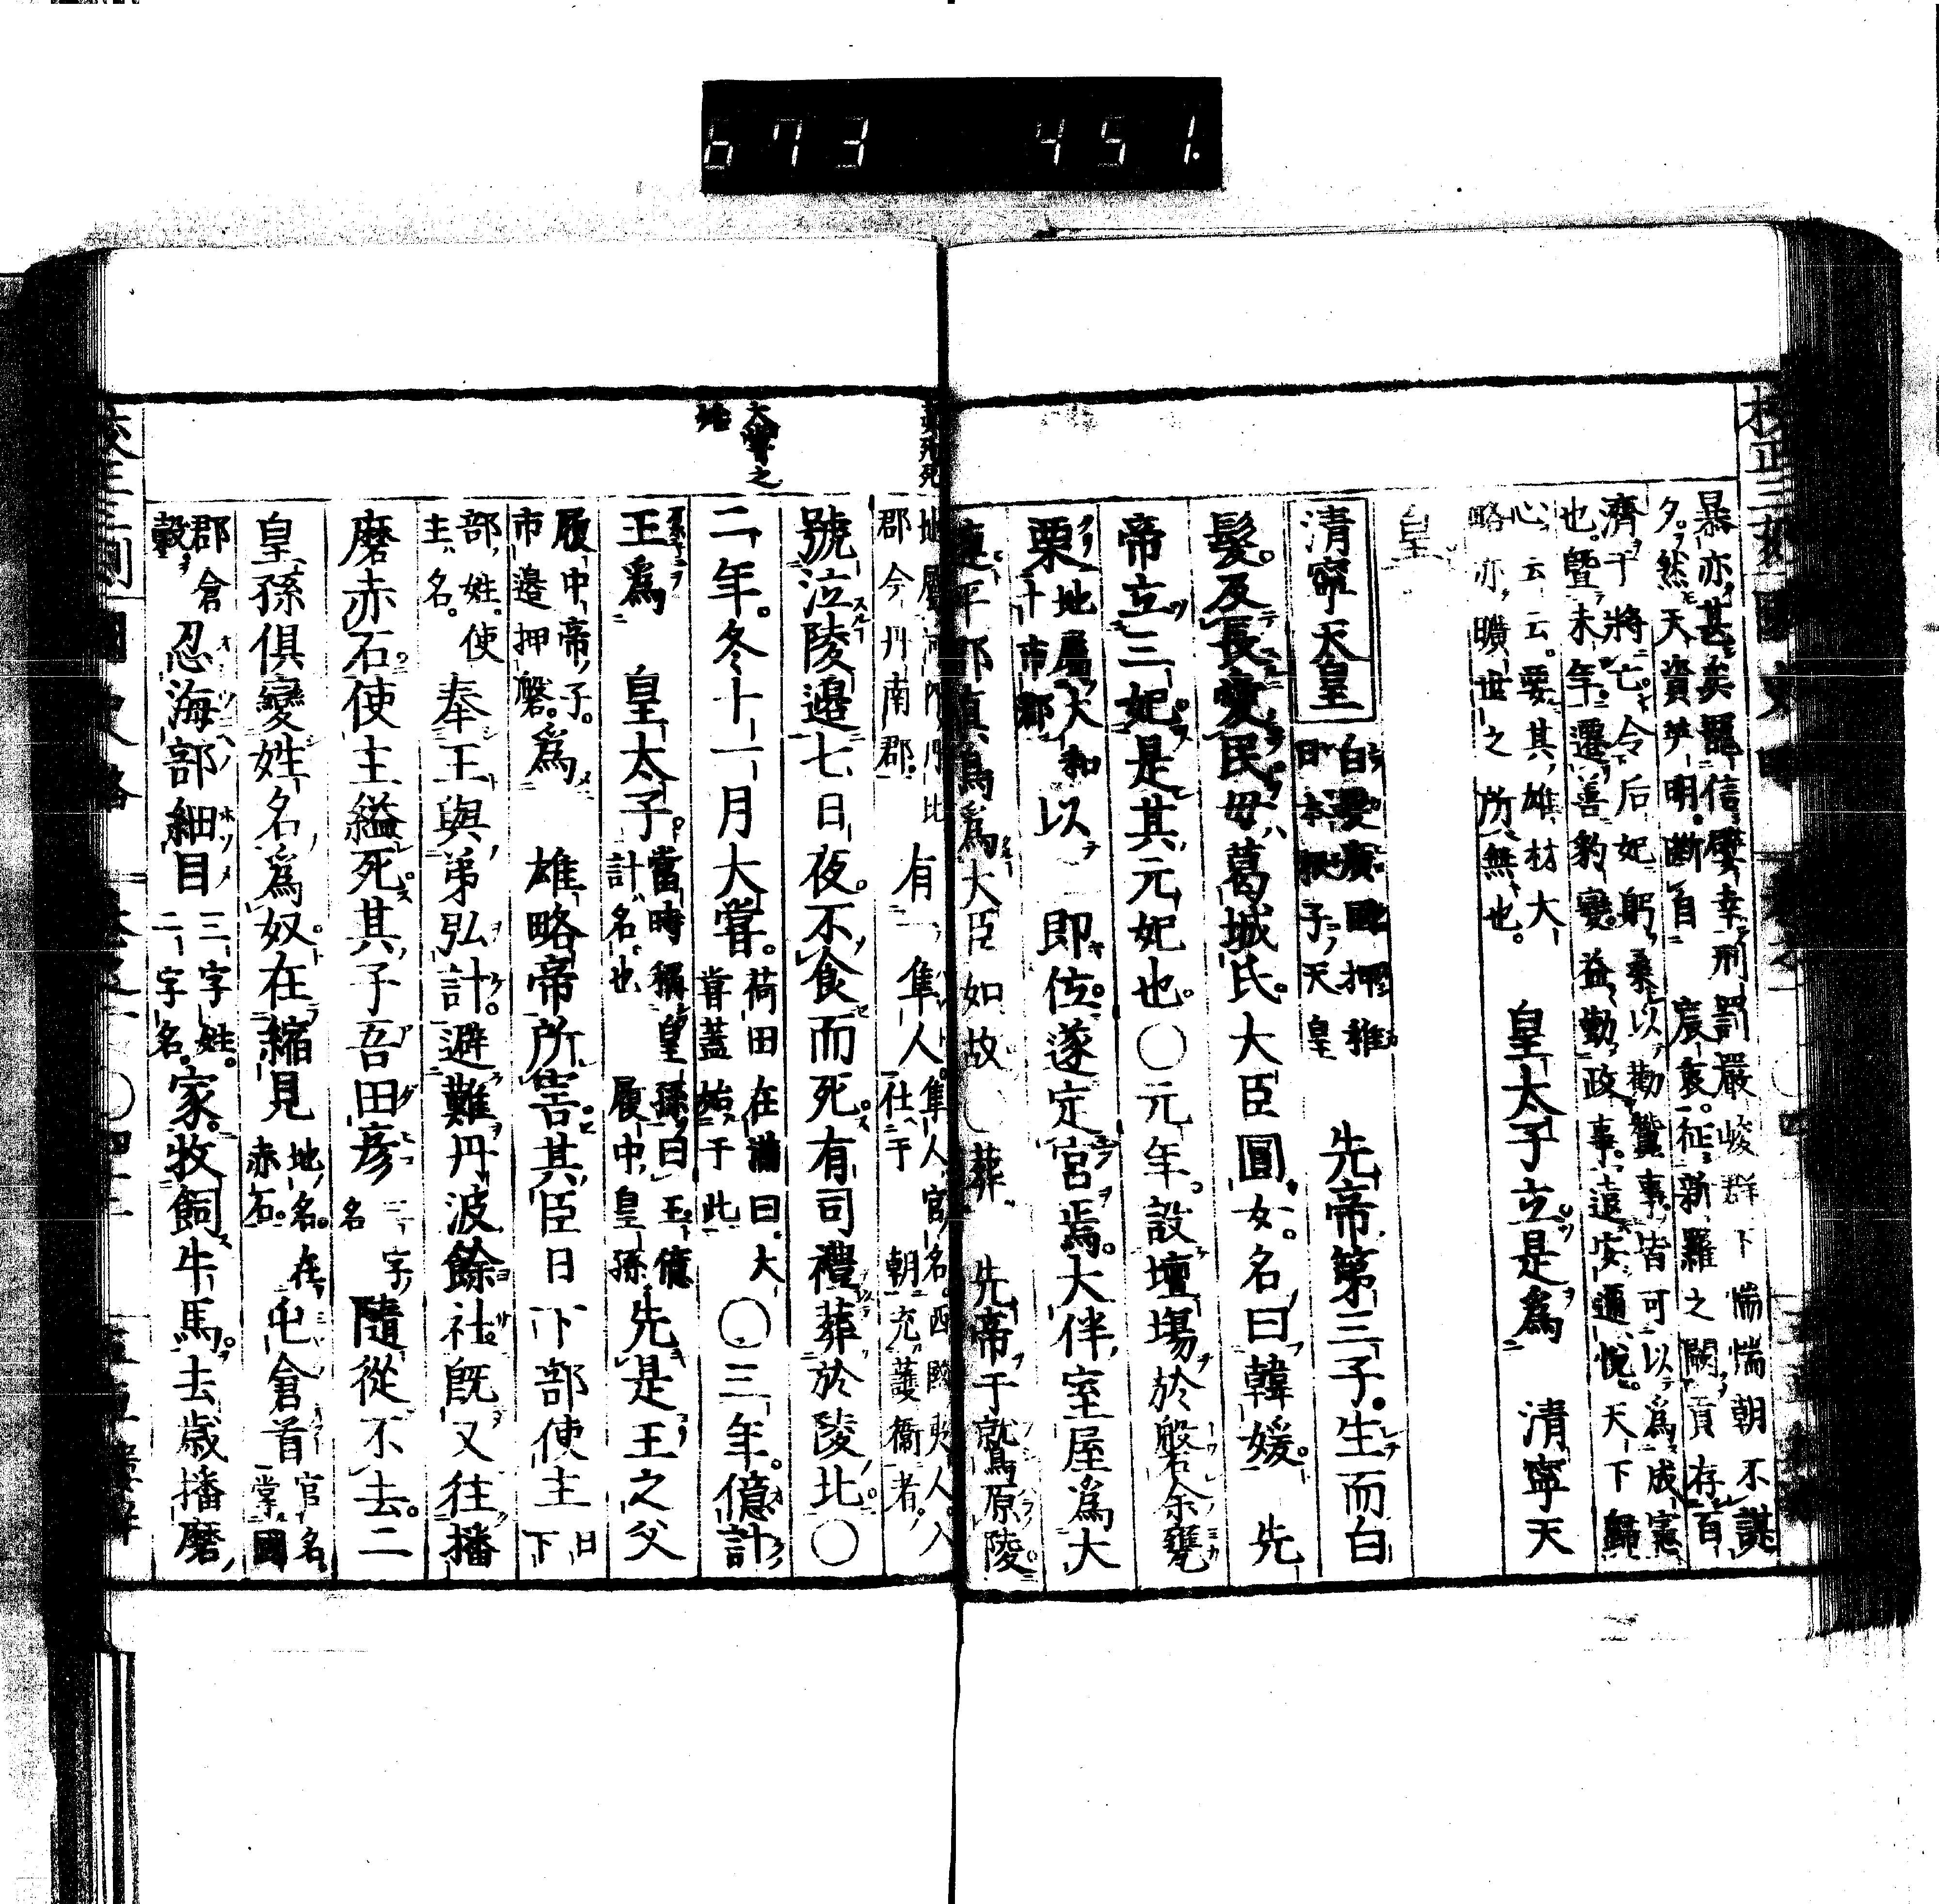 673 451.
暴亦甚矣罷信嬖幸刑罰嚴峻群下惴惴朝不謀
夕然天資英明斷自 宸衷征新羅之闕貢存百
濟于將亡令后妃躬桑以勸蠶事皆可以爲成憲
也曁末年遷善豹變益勤政事遠安邇悅天下歸
心云云要其雄材大
略亦曠世之所無也 皇太子立是爲 清寧天
皇
清寧天皇 白髮廣國押稚
日本根子天皇 先帝第三子生而白
髮及長愛民母葛城氏大臣圓女名曰韓媛 先
帝立三妃是其元妃也〇元年設壇場於磐余甕
栗 地屬大和
十市郡 以 即位遂定宮焉大伴室屋爲大
連平郡眞鳥爲大臣如故 葬 先帝于鷲原陵
郡今丹南郡 有一隼人 隼人官名西隅夷人入
仕于朝充護衞者
號泣陵邊七日夜不食而死有司禮葬於陵北〇
大嘗之
始
二年冬十一月大嘗 荷田在滿曰大
嘗蓋始于此 〇三年億計
王爲 皇太子 當時稱皇孫曰王億
計名也履中皇孫 先是王之父
履中帝子
市邊押磐 爲 雄略帝所害其臣日下部使主 日下
部姓使
主名 奉王與弟弘計避難丹波餘社既又往播
磨赤石使主縊死其子吾田彥 二字
名 隨從不去二
皇孫俱變姓名爲奴在縮見 地名在
赤石 屯倉首 官名
掌國
郡倉
穀 忍海部細目 三字姓
二字名 家牧飼牛馬去歲播磨